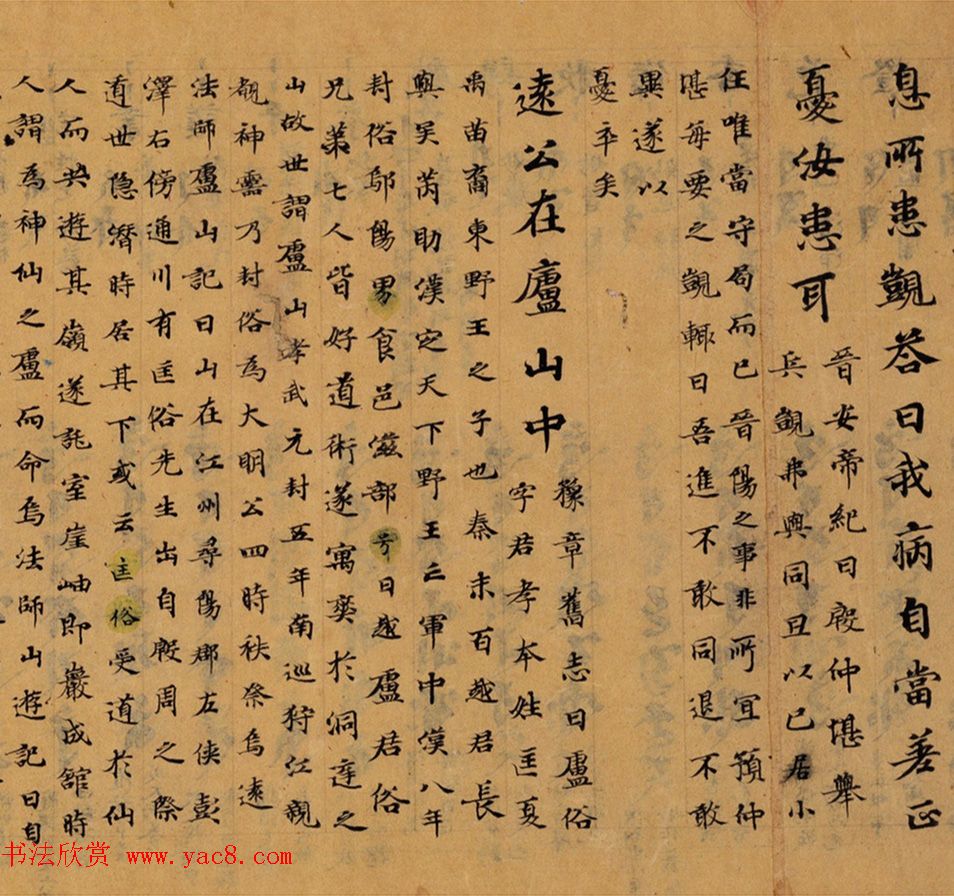 息所患覬荅曰我病自當差正
憂汝患耳
晉安帝紀曰殷仲堪舉
兵覬弗與同且以已居小
任唯當守局而已晉陽之事非所宜預仲
堪每要之覬輒曰吾進不敢同退不敢
異遂以
憂卒矣
遠公在廬山中
豫章舊志曰盧俗
字君孝本姓匡夏
禹苗裔東野王之子也秦末百越君長
與吳芮助漢定天下野王亡軍中漢八年
封俗鄔陽男食邑滋部号曰越盧君俗
兄弟七人皆好道術遂寓於洞之
山故世謂盧山孝武元封五年南巡狩江親
覩神靈乃封俗為大明公四時秩祭焉遠
法師盧山記曰山在江州尋陽郡左俠彭
澤右傍通川有匡俗先生出自殷周之際
遁世隐潛時居其下或云匡俗受道於仙
人而共遊其嶺遂託室崖岫即巖成舘時
人謂為神仙之盧而命焉法師山遊記曰自
书法欣赏 www.yac8.com